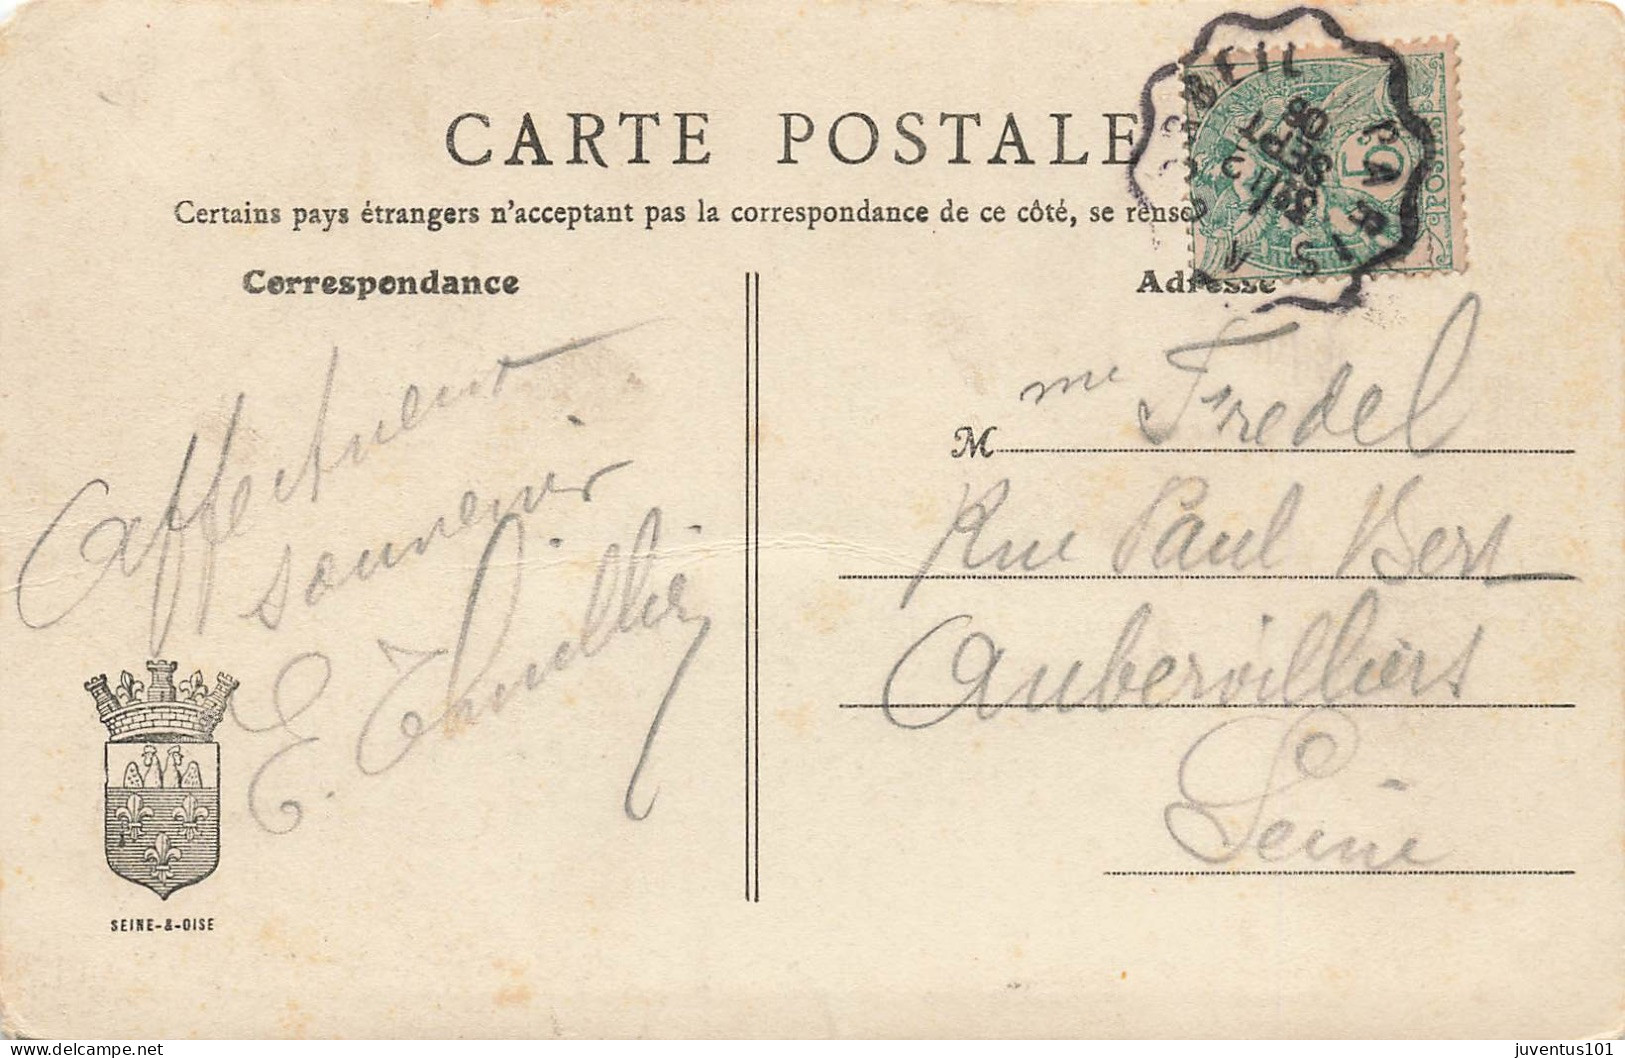 CARTE POSTALE
Certains pays étrangers n'acceptant pas la correspondance de ce côté, se rense
Correspondance
Adresse
Affectueux
souvenir
E.
M me Fredel
Rue Paul Bert
Aubervilliers
Seine
SEINE-&-OISE
PARIS
SEPT
08
5
POSTES
juventus101